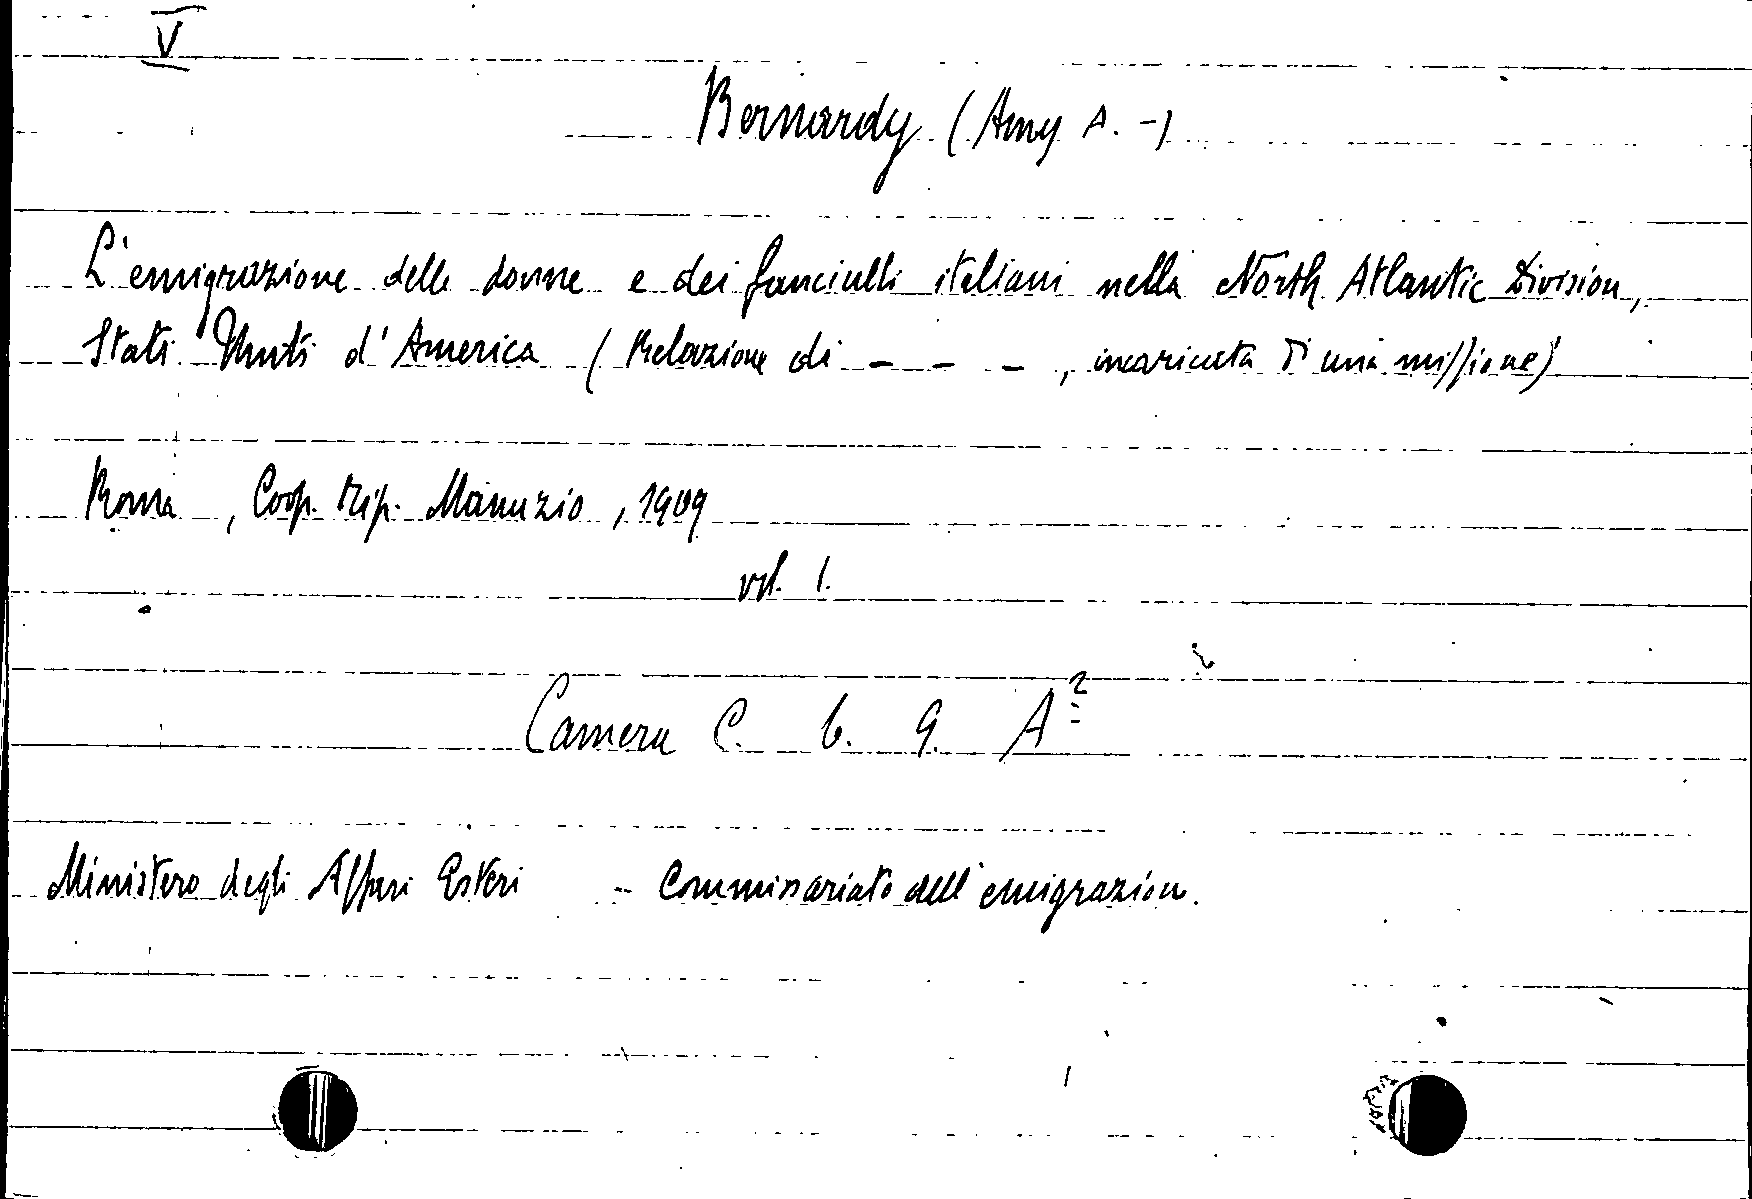 V
Bernardy (Amy A. -)
L'emigrazione delle donne e dei fanciulli italiani nella North Atlantic Division,
Stati Uniti d'America (Relazione di - - - , incaricata d'una missione)
Roma, Coop. tip. Manuzio, 1909
vol. 1.
Camera C. 6. 9. A²
Ministero degli Affari Esteri - Commissariato dell'emigrazione.